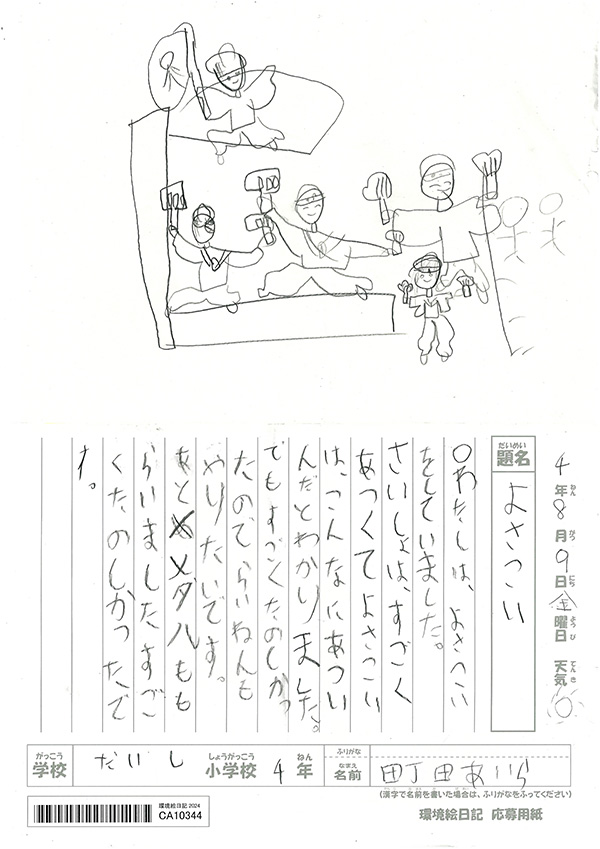 4年8月9日金曜日 天気
ねん がつ にち ようび てんき
だいめい
題名
よさこい
わたしは、よさこい
をしていました。
さいしょは、すごく
あつくてよさこい
は、こんなにあつい
んだとわかりました。
でもすごくたのしかっ
たのでらいねんも
やりたいです。
あとメダルもも
らいましたすごく
くたのしかったで
す。
がっこう
学校
だいし
しょうがっこう
小学校
4
ねん
年
ふりがな
なまえ
名前
町田あいら
(漢字で名前を書いた場合は、ふりがなをふってください)
環境絵日記 2024
CA10344
環境絵日記 応募用紙